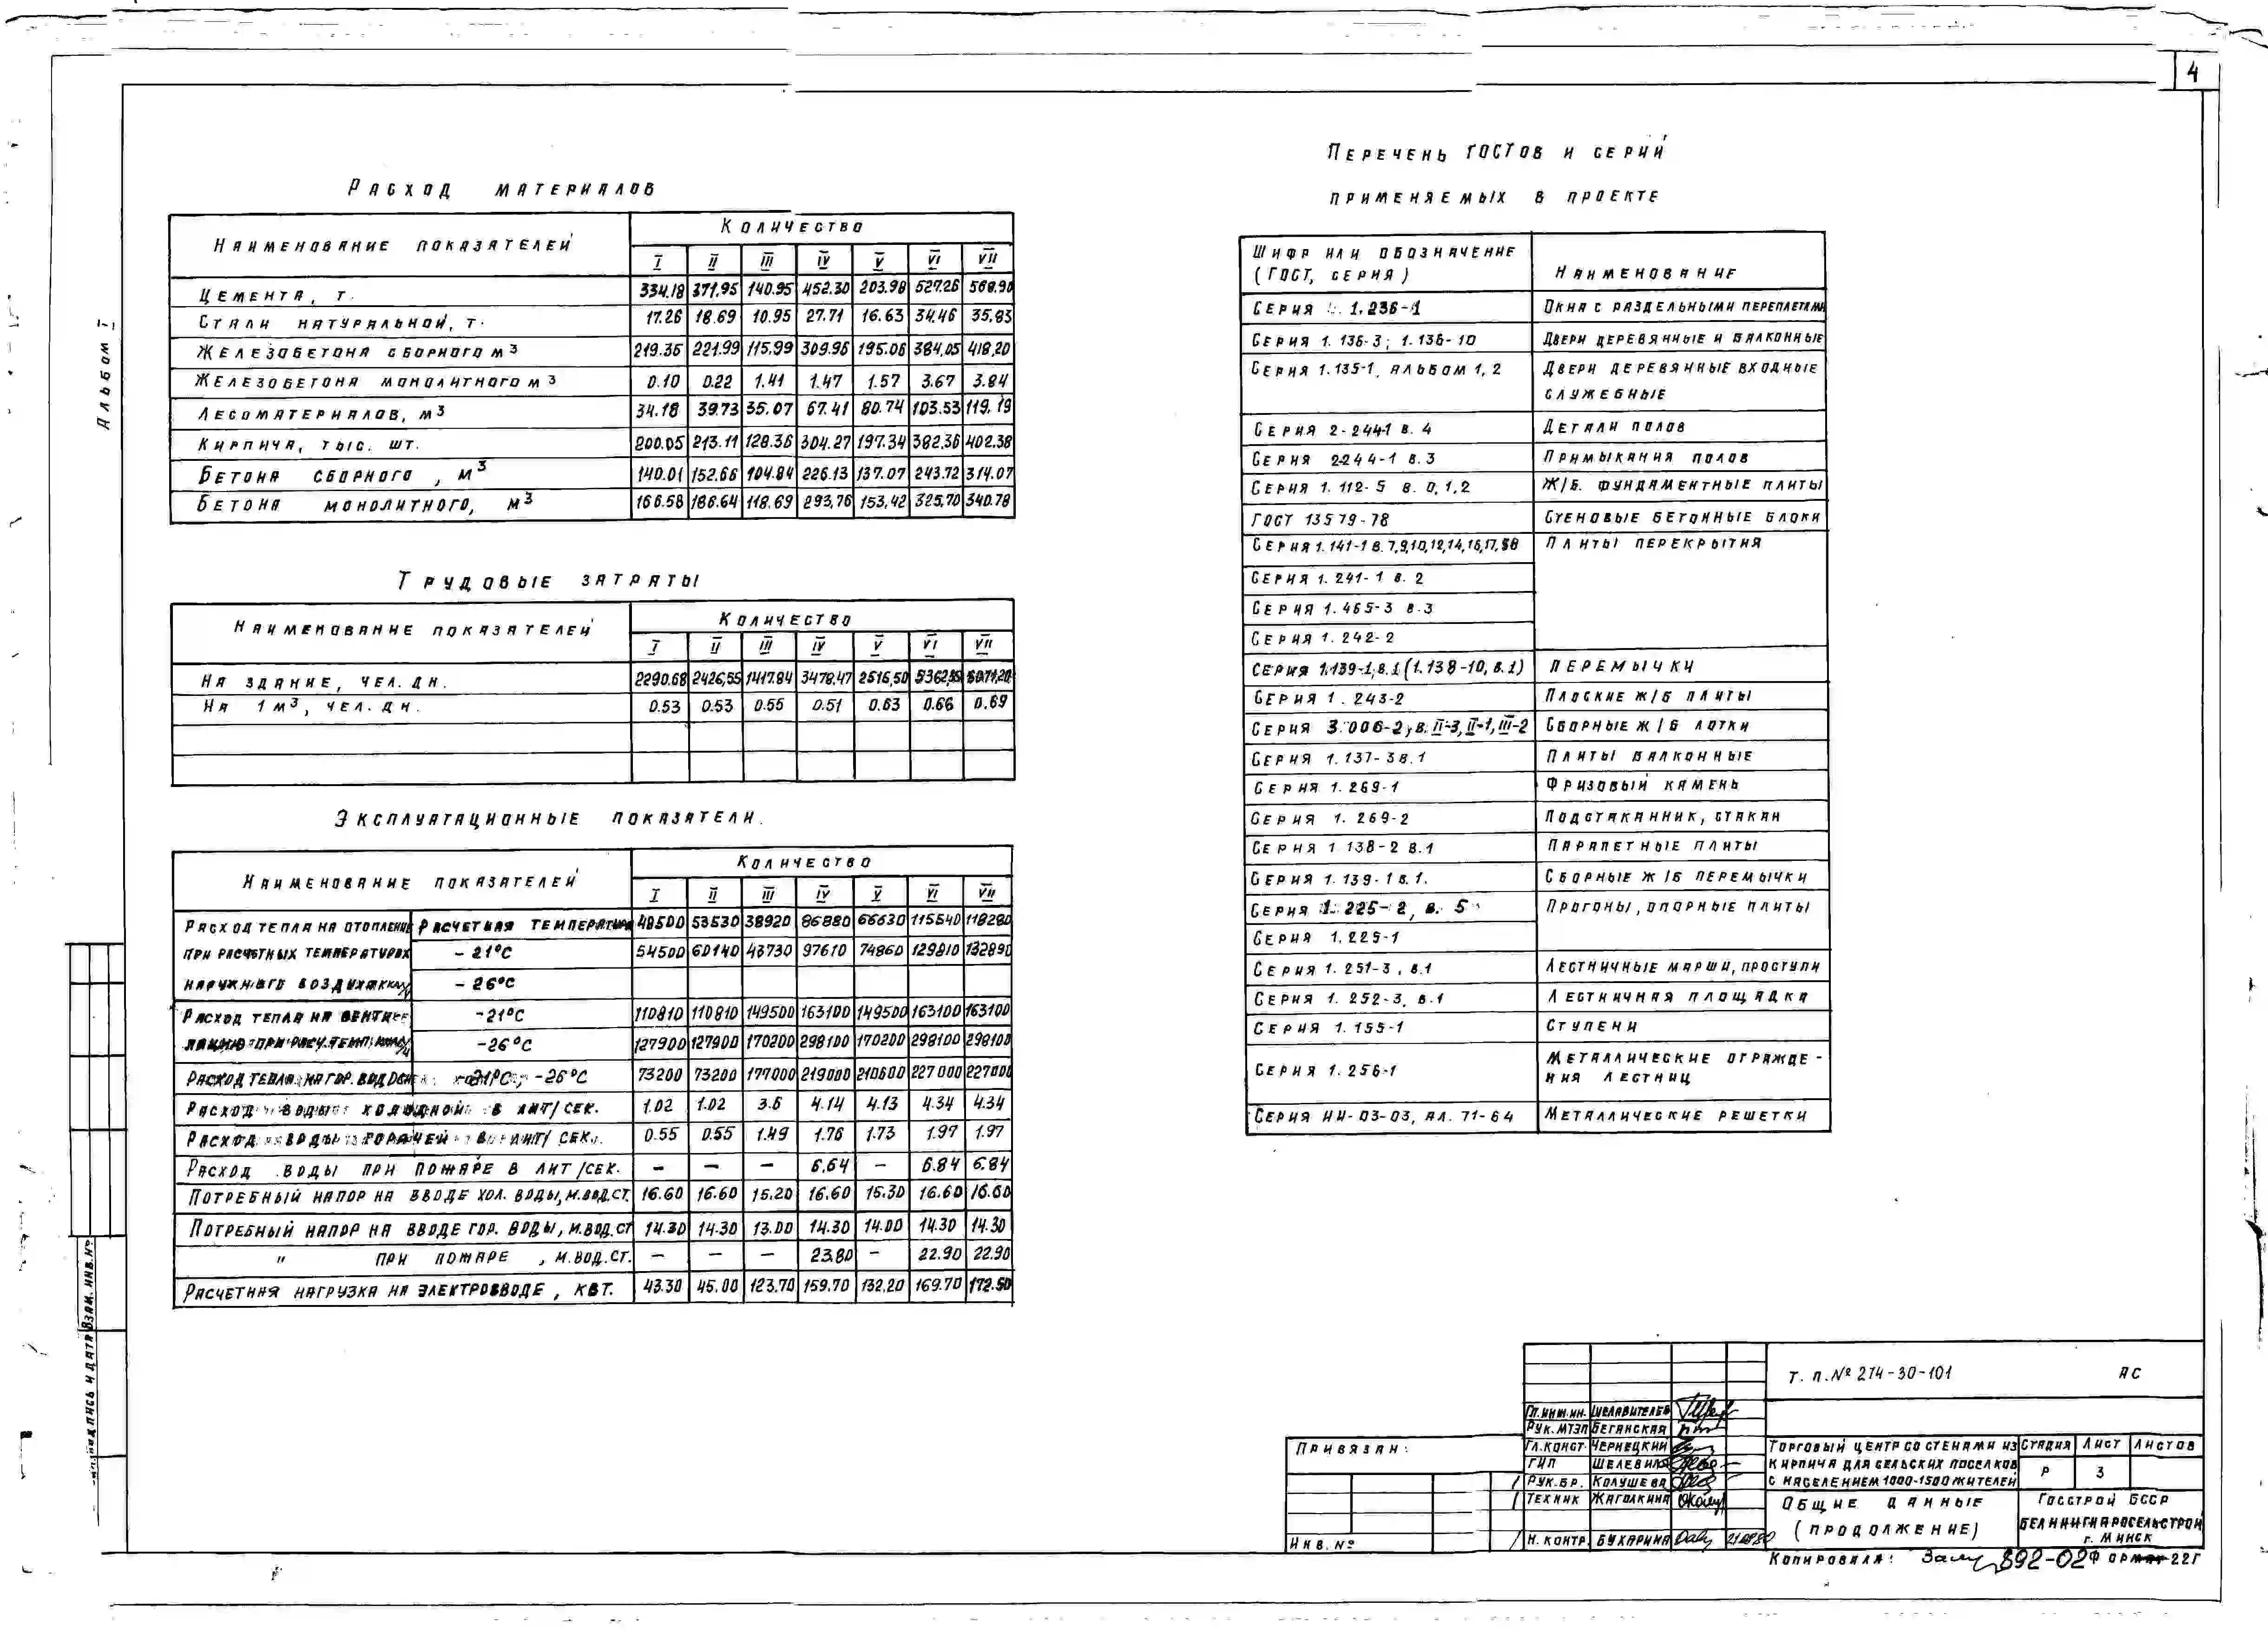 4
Альбом I
Расход материалов
Наименование показателей Количество
I II III IV V VI VII
Цемента, т. 334.18 371.95 140.95 452.30 203.98 527.26 568.90
Стали натуральной, т. 17.26 18.69 10.95 27.71 16.63 34.46 35.83
Железобетона сборного м3 219.36 221.99 115.99 309.96 195.06 384.05 418.20
Железобетона монолитного м3 0.10 0.22 1.41 1.47 1.57 3.67 3.84
Лесоматериалов, м3 34.18 39.73 35.07 67.41 80.74 103.53 119.19
Кирпича, тыс. шт. 200.05 213.11 128.36 304.27 197.34 382.36 402.38
Бетона сборного, м3 140.01 152.66 104.84 226.13 137.07 243.72 314.07
Бетона монолитного, м3 166.58 186.64 118.69 293.76 153.42 325.70 340.78
Трудовые затраты
Наименование показателей Количество
I II III IV V VI VII
На здание, чел. дн. 2290.68 2426,55 1417.84 3478.47 2516,50
На 1 м3, чел. дн. 0.53 0.53 0.55 0.51 0.63 0.66 0.69
Эксплуатационные показатели.
Наименование показателей Количество
I II III IV V VI VII
Расход тепла на отопление Расчетная температура 49500 53530 38920 86880 66630 115540 118280
при расчетных температурах - 21°С 54500 60140 43730 97610 74860 129810 132890
наружного воздуха ккал/ч - 26°С
Расход тепла на венти- -21°С 110810 110810 149500 163100 149500 163100 163100
ляцию при расч. темп. ккал/ч -26°С 127900 127900 170200 298100 170200 298100 298100
Расход тепла на гор. вод -21°С; -26°С 73200 73200 177000 219000 210600 227000 227000
Расход воды холодной в лит/сек. 1.02 1.02 3.6 4.14 4.13 4.34 4.34
Расход воды горячей в лит/сек. 0.55 0.55 1.49 1.76 1.73 1.97 1.97
Расход воды при пожаре в лит/сек. — — — 6.64 — 6.84 6.84
Потребный напор на вводе хол. воды, м.вод.ст. 16.60 16.60 15.20 16.60 15.30 16.60 16.60
Потребный напор на вводе гор. воды, м.вод.ст 14.30 14.30 13.00 14.30 14.00 14.30 14.30
" при пожаре, м.вод.ст. — — — 23.80 — 22.90 22.90
Расчетная нагрузка на электровводе, квт. 43.30 45.00 123.70 159.70 132.20 169.70 172.50
Перечень ГОСТов и серий
применяемых в проекте
Шифр или обозначение
(ГОСТ, серия) Наименование
Серия 1.236-1 Окна с раздельными переплетами
Серия 1.136-3; 1.136-10 Двери деревянные и балконные
Серия 1.135-1, альбом 1, 2 Двери деревянные входные
служебные
Серия 2-244-1 в. 4 Детали полов
Серия 2-244-1 в.3 Примыкания полов
Серия 1.112-5 в. 0,1,2 Ж/б. фундаментные плиты
ГОСТ 13579-78 Стеновые бетонные блоки
Серия 1.141-1 в.7,9,10,12,14,16,17,58 Плиты перекрытия
Серия 1.241-1 в. 2
Серия 1.465-3 в.3
Серия 1.242-2
Серия 1.139-1, в.1 (1.138-10, в.1) Перемычки
Серия 1.243-2 Плоские ж/б плиты
Серия 3.006-2, в. II-3, II-1, III-2 Сборные ж/б лотки
Серия 1.137-3 в.1 Плиты балконные
Серия 1.269-1 Фризовый камень
Серия 1.269-2 Подстаканник, стакан
Серия 1.138-2 в.1 Парапетные плиты
Серия 1.139-1 в.1. Сборные ж/б перемычки
Серия 1.225-2, в. 5 Прогоны, опорные плиты
Серия 1.225-1
Серия 1.251-3, в.1 Лестничные марши, проступи
Серия 1.252-3, в.1 Лестничная площадка
Серия 1.155-1 Ступени
Серия 1.256-1 Металлические огражде-
ния лестниц
Серия ИИ-03-03, ал. 71-64 Металлические решетки
Взам. инв. №
Подпись и дата
Привязан:
Инв. №
Гл. инж. ин.
Рук. МТЭП Беганская
Гл. конст. Чернецкий
ГИП
Рук. бр. Колушева
Техник Жаголкина
Н. контр. Бухарина
Т. п. № 274-30-101 АС
Торговый центр со стенами из
кирпича для сельских поселков
с населением 1000-1500 жителей
Стадия Лист Листов
Р 3
Общие данные
(продолжение)
Госстрой БССР
Белниигипросельстрой
г. Минск
Копировала: 892-02 Формат 22Г